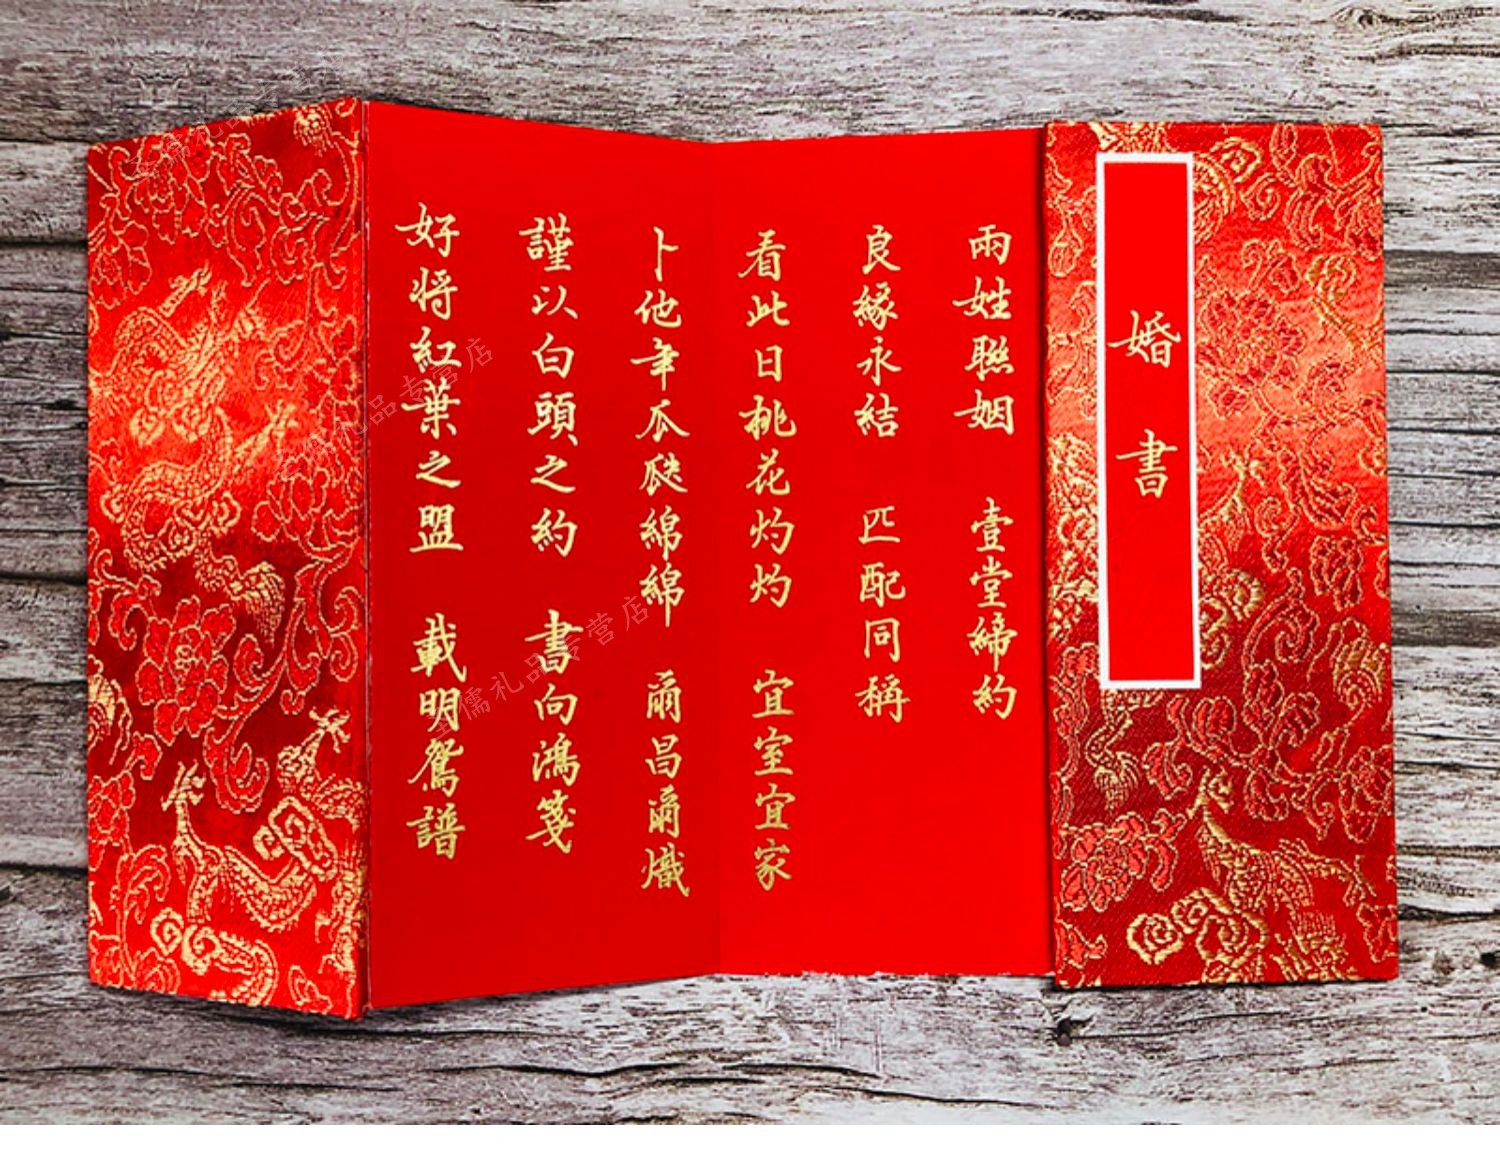 婚書
兩姓聯姻 壹堂締約
良緣永結 匹配同稱
看此日桃花灼灼 宜室宜家
卜他年瓜瓞綿綿 爾昌爾熾
謹以白頭之約 書向鴻箋
好將紅葉之盟 載明鴛譜
礼品专营店
儒礼品专营店